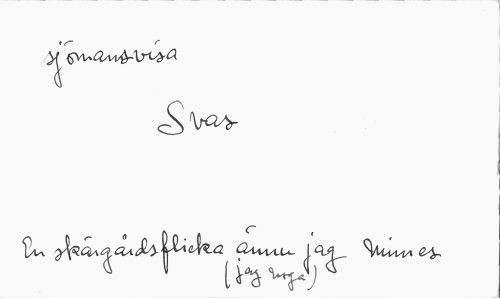 sjömansvisa
Svas
En skärgårdsflicka ännu jag minnes
(jag noga)